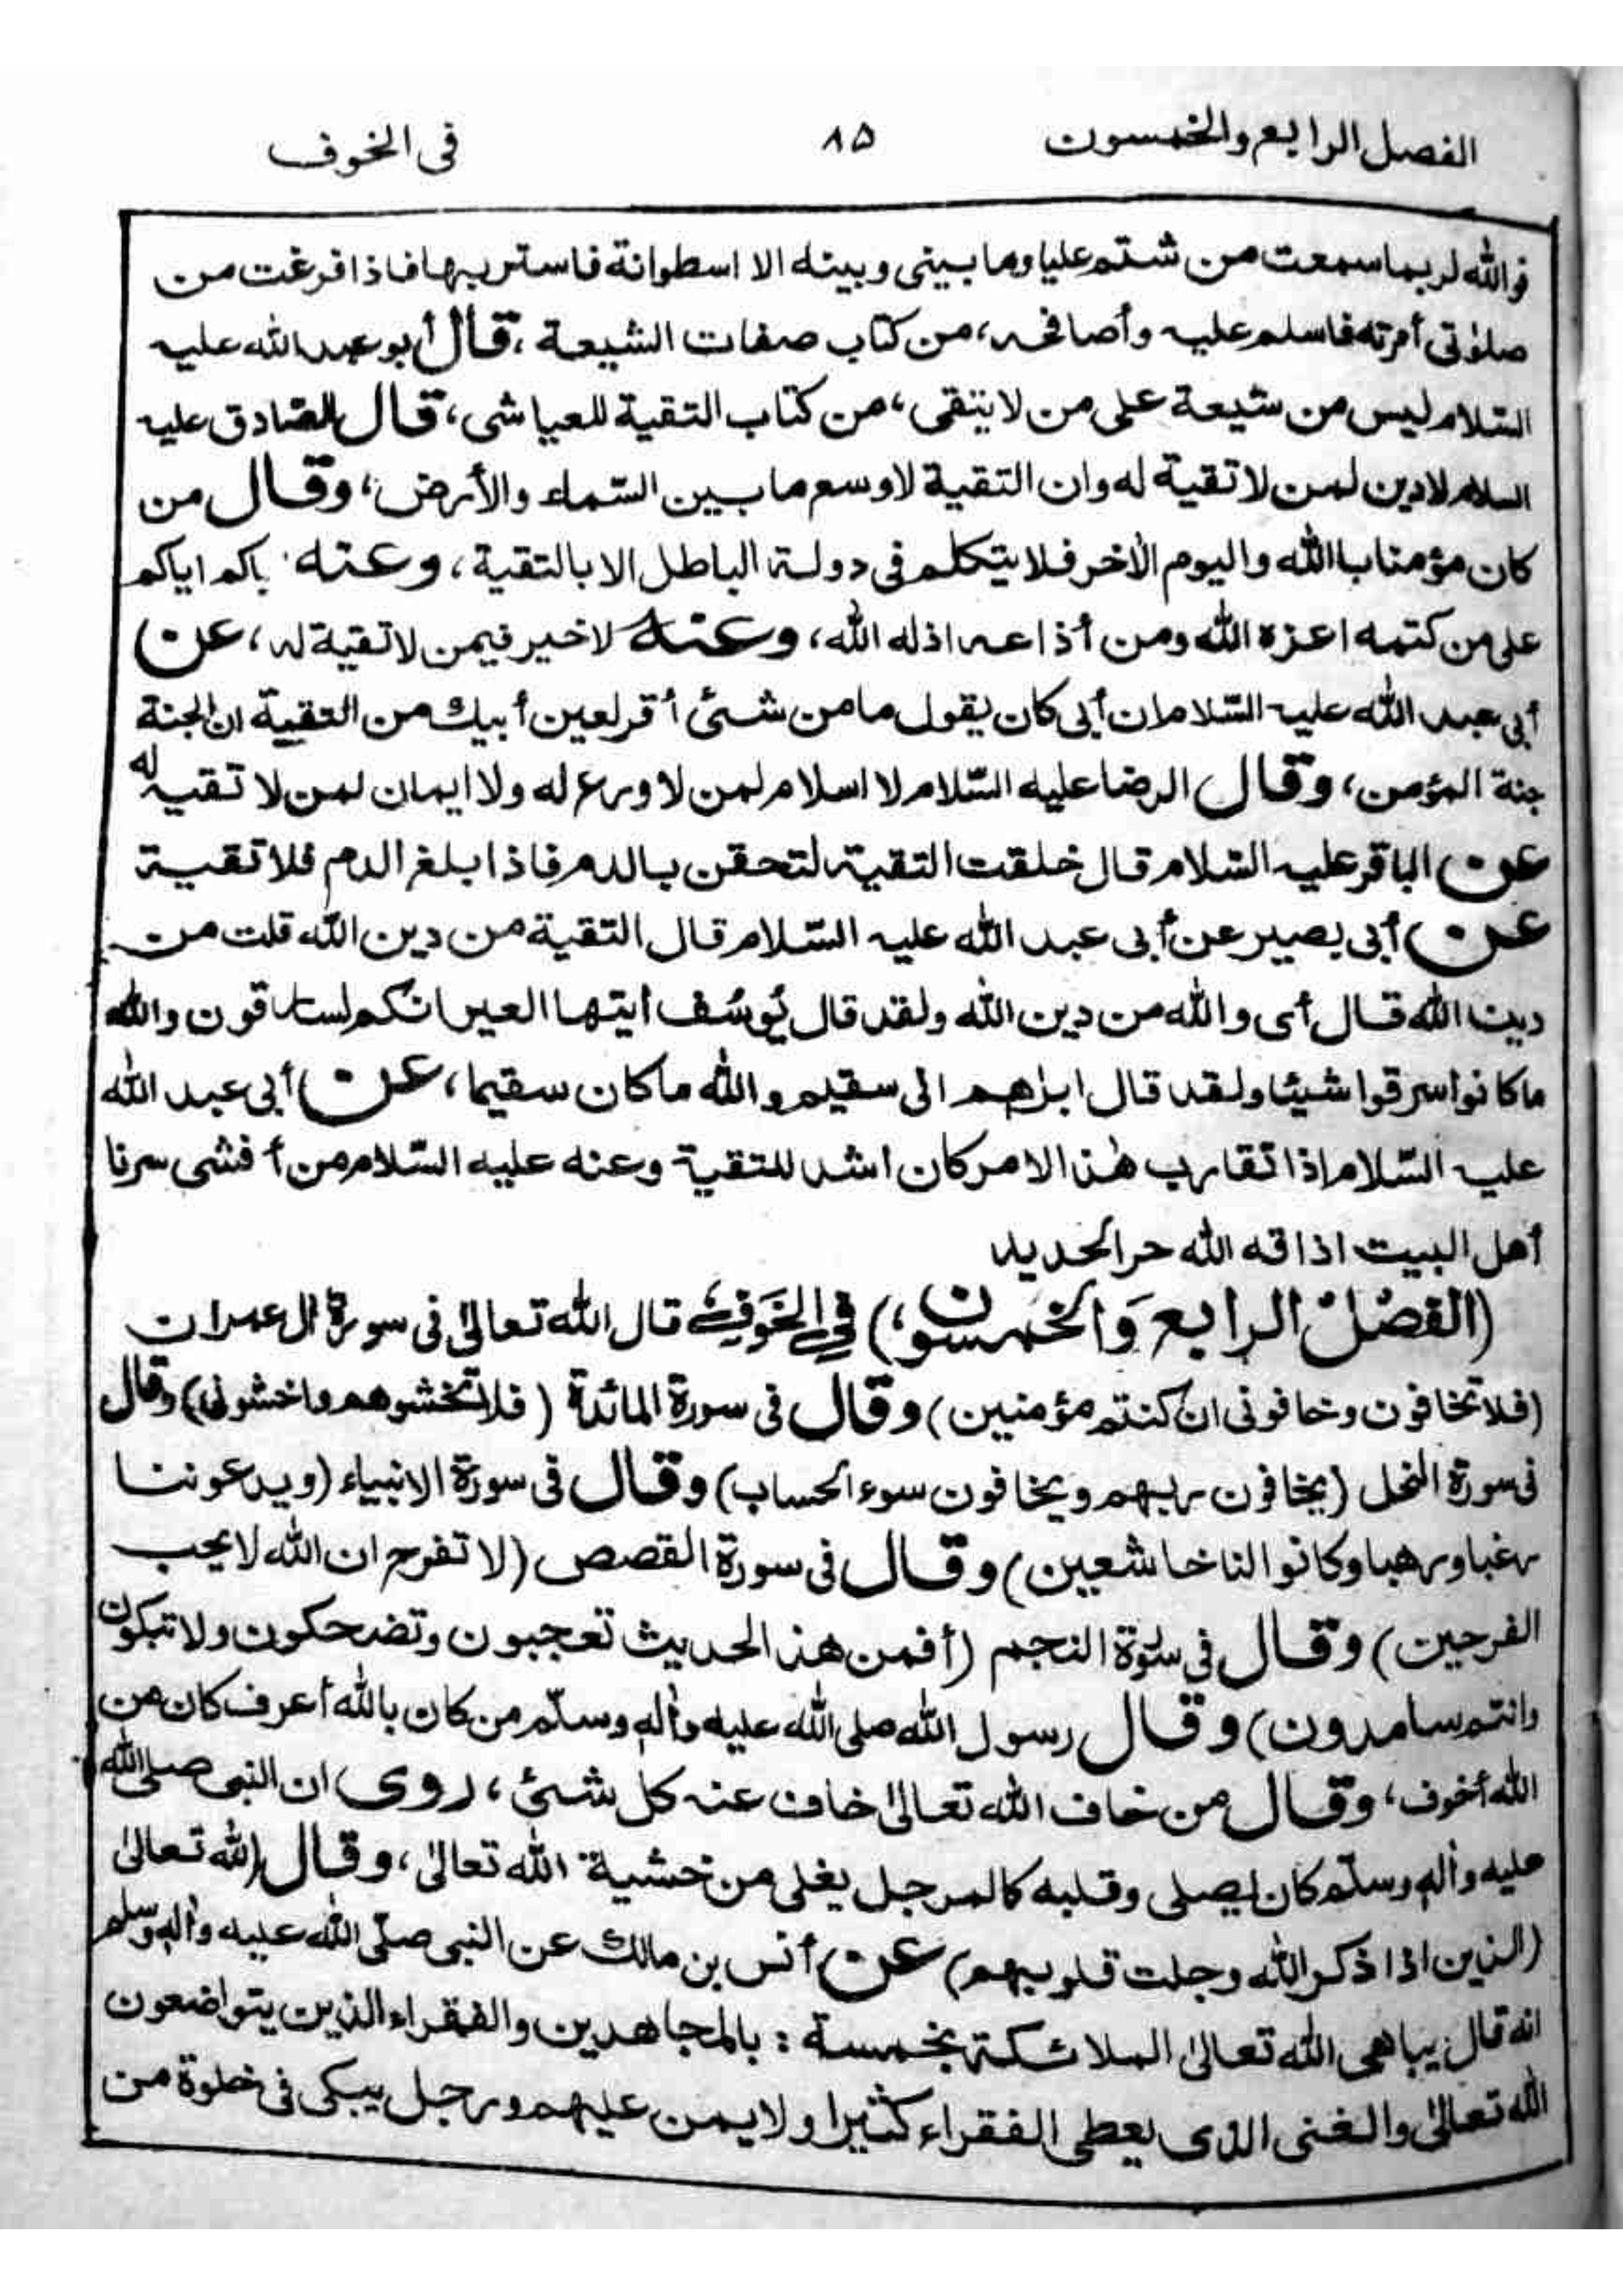 الفصل الرابع والخمسون ٨٥ فى الخوف
فوالله لربما سمعت من شتم عليا وما بينى وبينه الا اسطوانة فاستتر بها فاذا فرغت من
صلوٰتى أمر به فاسلم عليه وأصافحه، من كتاب صفات الشيعة، قال أبو عبد الله عليه
السّلام ليس من شيعة على من لا يتقى، من كتاب التقية للعياشى، قال الصّادق عليه
السلام لا دين لمن لا تقية له وان التقية لاوسع ما بين السّماء والأرض، وقال من
كان مؤمنا بالله واليوم الاٰخر فلا يتكلم فى دولة الباطل الا بالتقية، وعنه اياكم
على من كتمه اعزه الله ومن أذاعه اذله الله، وعنه لا خير فيمن لا تقية له، عن
أبى عبد الله عليه السّلام ان أبى كان يقول ما من شئ أقر لعين أبيك من التقية ان الجنة
جنة المؤمن، وقال الرضا عليه السّلام لا اسلام لمن لا ورع له ولا ايمان لمن لا تقية له
عن الباقر عليه السّلام قال خلقت التقية لتحقن بالدم فاذا بلغ الدم فلا تقية
عن أبى بصير عن أبى عبد الله عليه السّلام قال التقية من دين الله قلت من
دين الله قال أى والله من دين الله ولقد قال يُوسُف ايتها العير انكم لسارقون والله
ما كانوا سرقوا شيئا ولقد قال ابراهيم انى سقيم والله ما كان سقيما، عن أبى عبد الله
عليه السّلام اذا تقارب هٰذا الامر كان اشد للتقية وعنه عليه السّلام من أفشى سرنا
أهل البيت اذاقه الله حر الحديد
(الفصْلُ الرابع وَالخمسون) فِى الخَوفِ قال الله تعالىٰ فى سورة اٰل عمران
(فلا تخافون وخافونى ان كنتم مؤمنين) وقال فى سورة المائدة (فلا تخشوهم واخشونى) وقال
فى سورة النحل (يخافون ربهم ويخافون سوء الحساب) وقال فى سورة الانبياء (ويدعوننا
رغبا ورهبا وكانوا لنا خاشعين) وقال فى سورة القصص (لا تفرح ان الله لا يحب
الفرحين) وقال فى سورة النجم (أفمن هذا الحديث تعجبون وتضحكون ولا تبكون
وانتم سامدون) وقال رسول الله صلى الله عليه واٰله وسلّم من كان بالله أعرف كان من
الله أخوف، وقال من خاف الله تعالىٰ خاف عنه كل شئ، روى ان النبى صلى الله
عليه واٰله وسلّم كان يصلى وقلبه كالمرجل يغلى من خشية الله تعالىٰ، وقال الله تعالىٰ
(الذين اذا ذكر الله وجلت قلوبهم) عن أنس بن مالك عن النبى صلّى الله عليه واٰله وسلم
انه قال يباهى الله تعالىٰ الملائكة بخمسة: بالمجاهدين والفقراء الذين يتواضعون
الله تعالىٰ والغنى الذى يعطى الفقراء كثيرا ولا يمن عليهم ورجل يبكى فى خلوة من